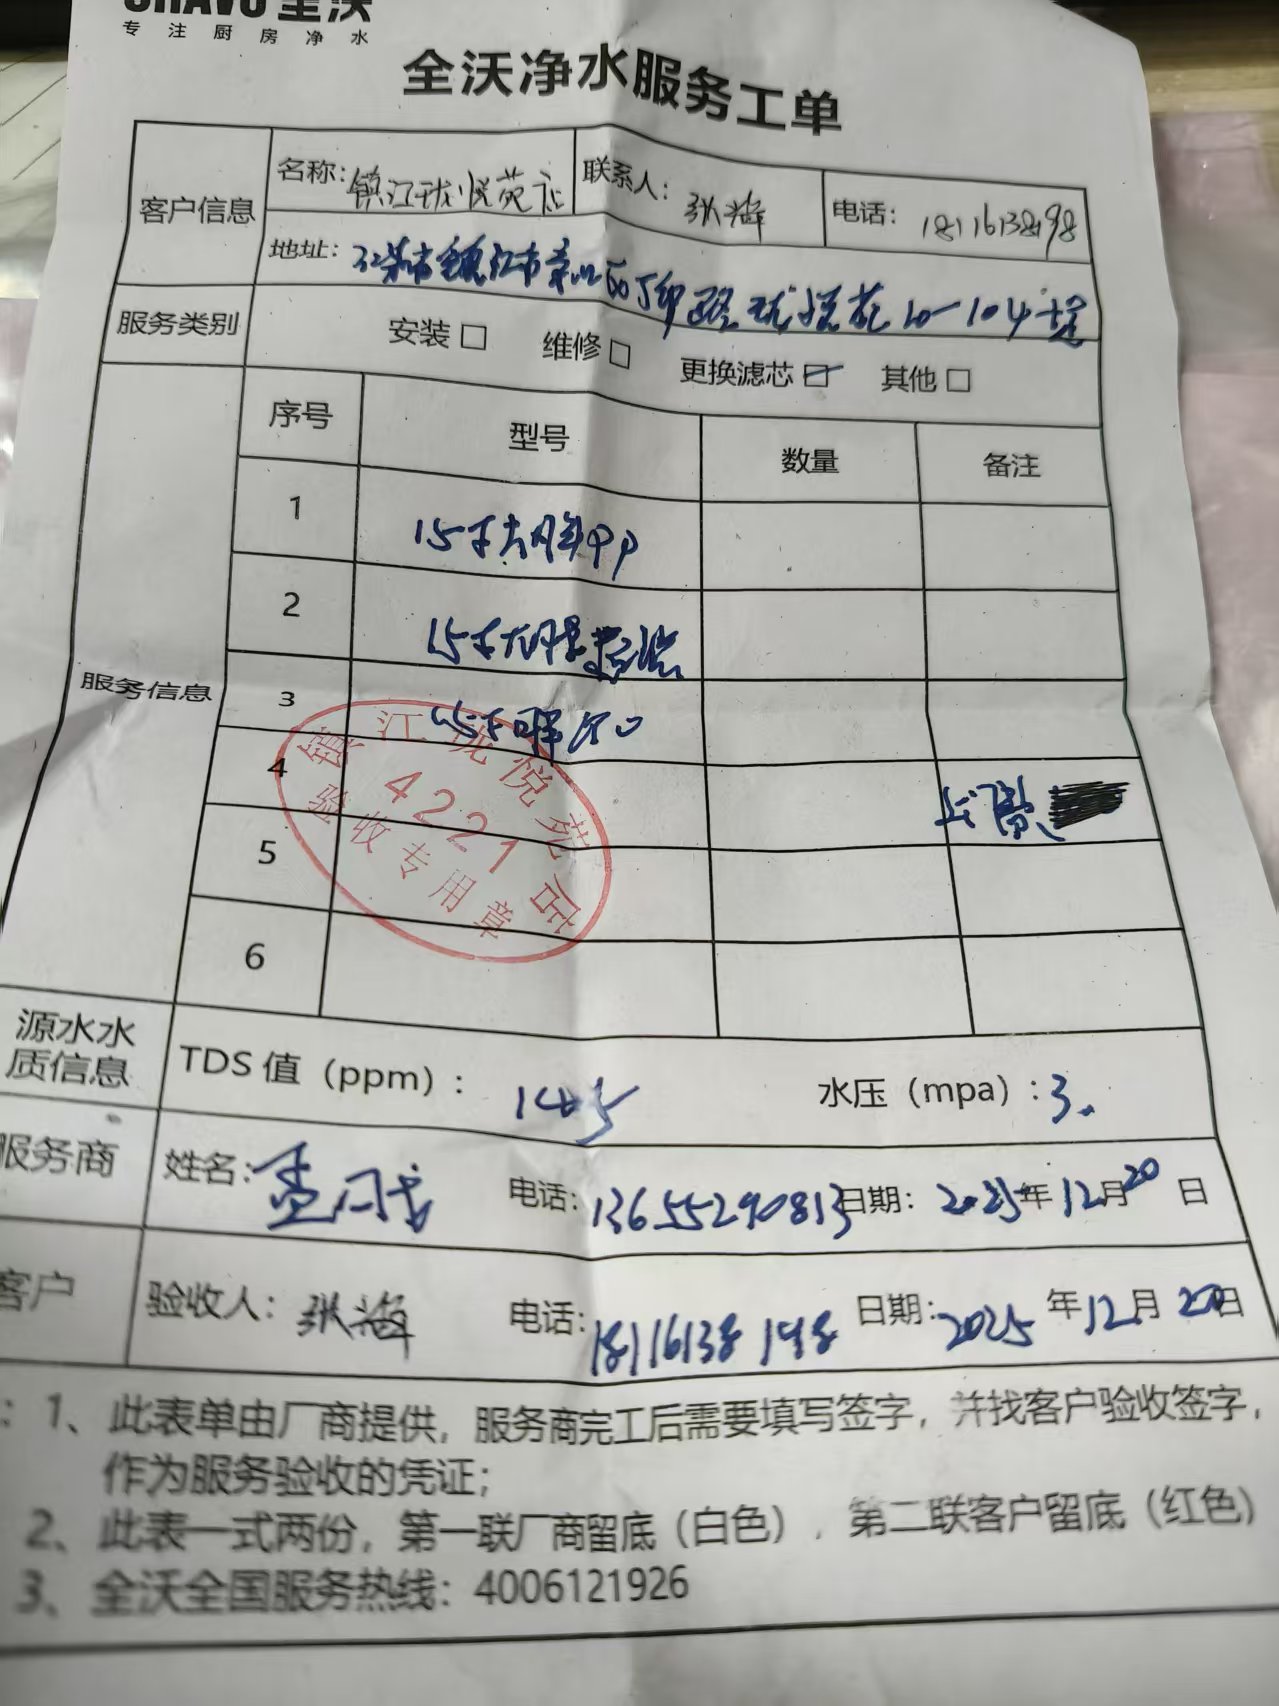 全沃
专注厨房净水
全沃净水服务工单
客户信息
名称：镇江珑悦苑店
联系人：张海
电话：18116138198
地址：江苏省镇江市 路珑悦苑10-104
服务类别
安装□ 维修□ 更换滤芯☑ 其他□
服务信息
序号 型号 数量 备注
1 15寸 PP
2 15寸
3
4
5
6
镇江珑悦苑店
4221
验收专用章
源水水质信息
TDS 值（ppm）：145
水压（mpa）：3.
服务商
姓名：
电话：13655290813
日期：2025年12月20日
客户
验收人：张海
电话：18116138198
日期：2025年12月20日
：1、此表单由厂商提供，服务商完工后需要填写签字，并找客户验收签字，
作为服务验收的凭证；
2、此表一式两份，第一联厂商留底（白色），第二联客户留底（红色）
3、全沃全国服务热线：4006121926